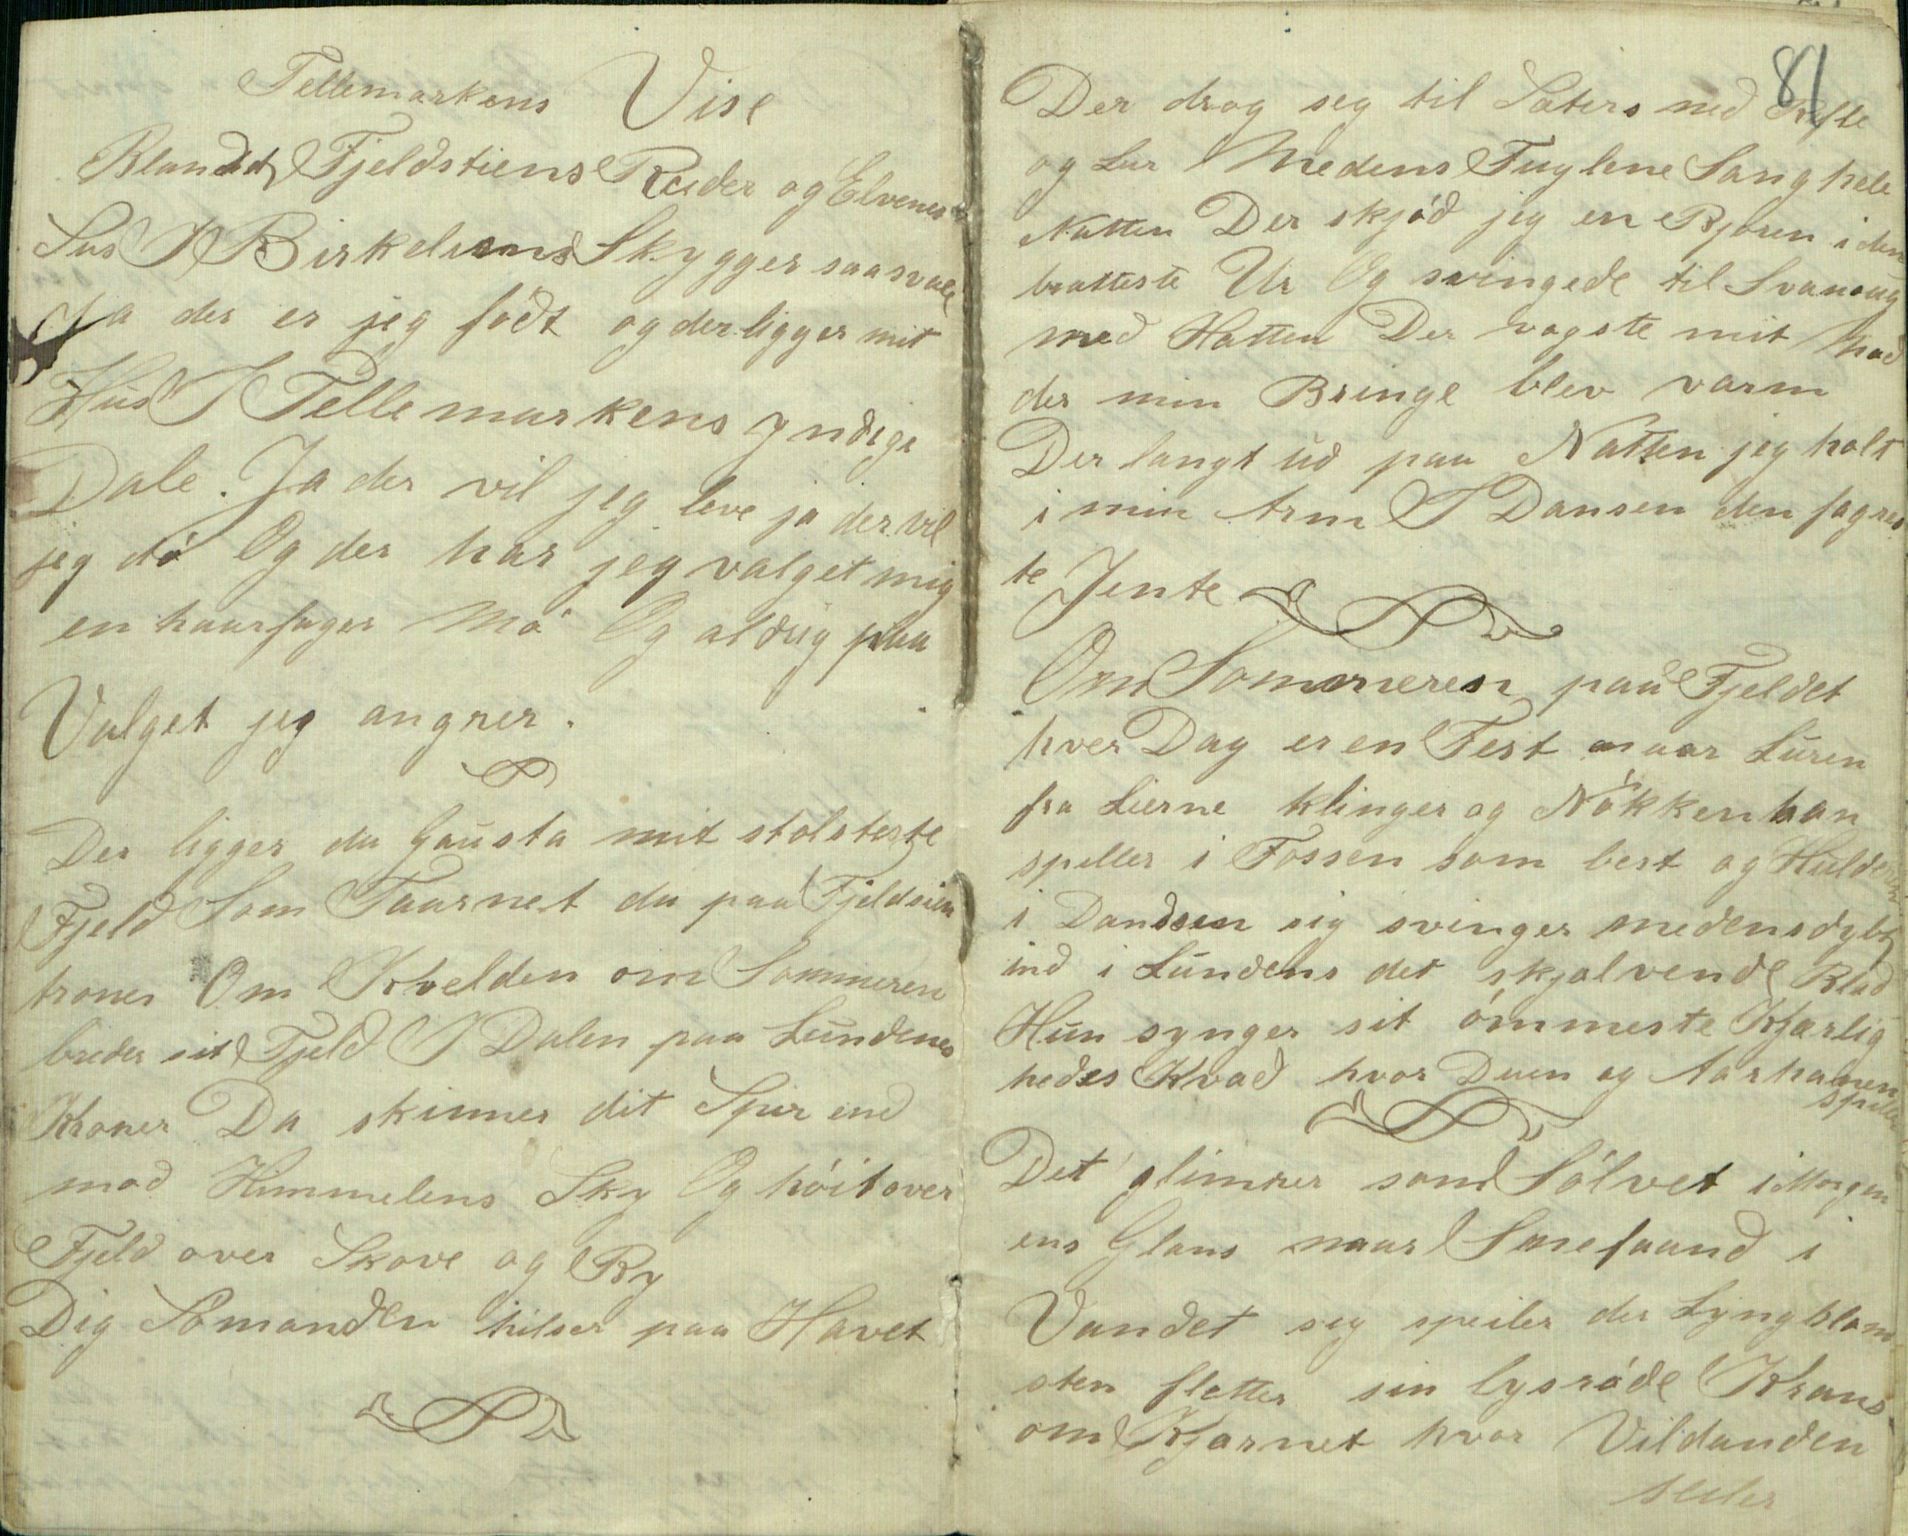 Tellemarkens Vise
Blandt Fjeldstiens Ruder og Elvenes
Sus I Birkeliens Skygger saa svale
Ja der er jeg födt og der ligger mit
Hus I Tellemarkens yndige
Dale. Ja der vil jeg leve ja der vil
jeg dö Og der har jeg valget mig
en haarfager Mö Og aldrig paa
Valget jeg angrer.
Der ligger du Gausta mit stolteste
Fjeld Som Taarnet du paa Fjeldvien
troner Om Kvelden om Sommeren
breder sit Fjeld I Dalen paa Lundenes
Kroner Da skinner dit Spir end
mod Himmelens Sky Og höit over
Fjeld over Skove og By
Dig Sömanden hilser paa Havet
81
Der drog jeg til Sæters med Rifle
og Lur Medens Fuglene Sang hele
Natten Der skjöd jeg en Björen i den
bratteste Ur Og svingede til Svanaug
med Hatten Der vogste mit Mod
der min Bringe blev varm
Der langt ud paa Natten jeg holt
i min Arm I Dansen den fagres
te Jente
Om Sommeren paa Fjeldet
hver Dag er en Fest naar Luren
fra Lierne klinger og Nökken han
speller i Fossen som best og Hulderen
i Dandsen sig svinger medens dybt
ind i Lundens det skjalvende Blad
Hun synger sit ömmeste Kjærlig
hedes Kvad hvor Duen og Aarhanen
spiller
Det glimrer som Sölvet i Morgen
ens Glans naar Snefaand i
Vandet sig speiler der Lyngblom
sten fletter sin lysröde Krans
om Kjærnet hvor Vildanden
seiler